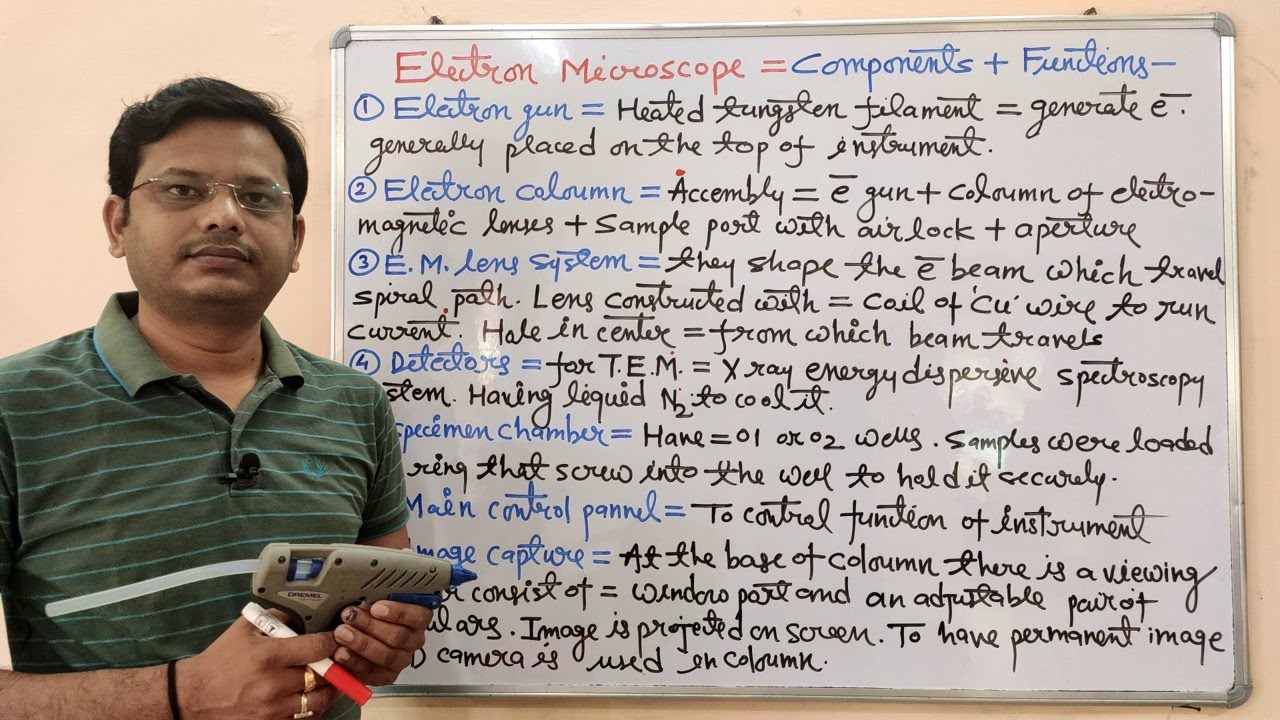 Electron Microscope = Components + Functions -
① Electron gun = Heated tungsten filament = generate e̅.
generally placed on the top of instrument.
② Electron coloumn = Accembly = e̅ gun + coloumn of electro-
magnetic lenses + Sample port with air lock + aperture
③ E.M. lens system = they shape the e̅ beam which travel
spiral path. Lens constructed with = coil of 'Cu' wire to run
current. Hole in center = from which beam travels
④ Detectors = for T.E.M. = X ray energy dispersive spectroscopy
stem. Having liquid N2 to cool it.
specimen chamber = Have = 01 or 02 wells. Samples were loaded
ring that screw into the well to hold it securely.
Main control pannel = To control function of instrument
Image capture = At the base of coloumn there is a viewing
consist of = window port and an adjustable pair of
ulars. Image is projected on screen. To have permanent image
D camera is used in coloumn.
DREMEL